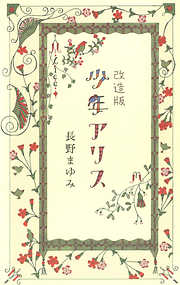 改造版
少年アリス
長野まゆみ